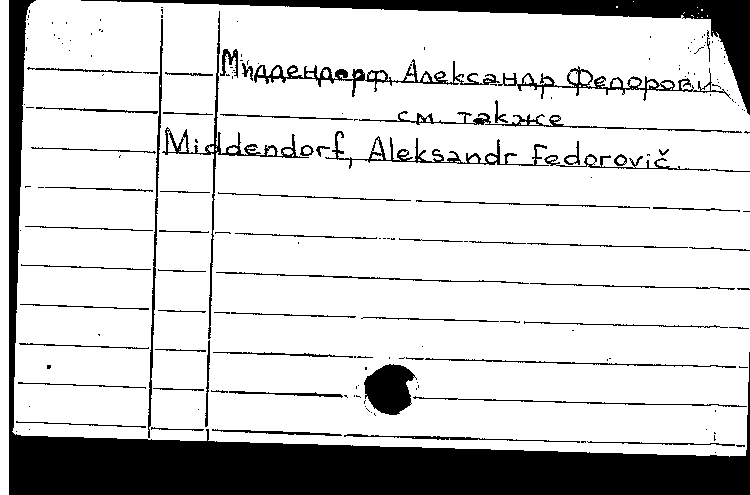 Миддендорф, Александр Федорович
см. также
Middendorf, Aleksandr Fedorovič.